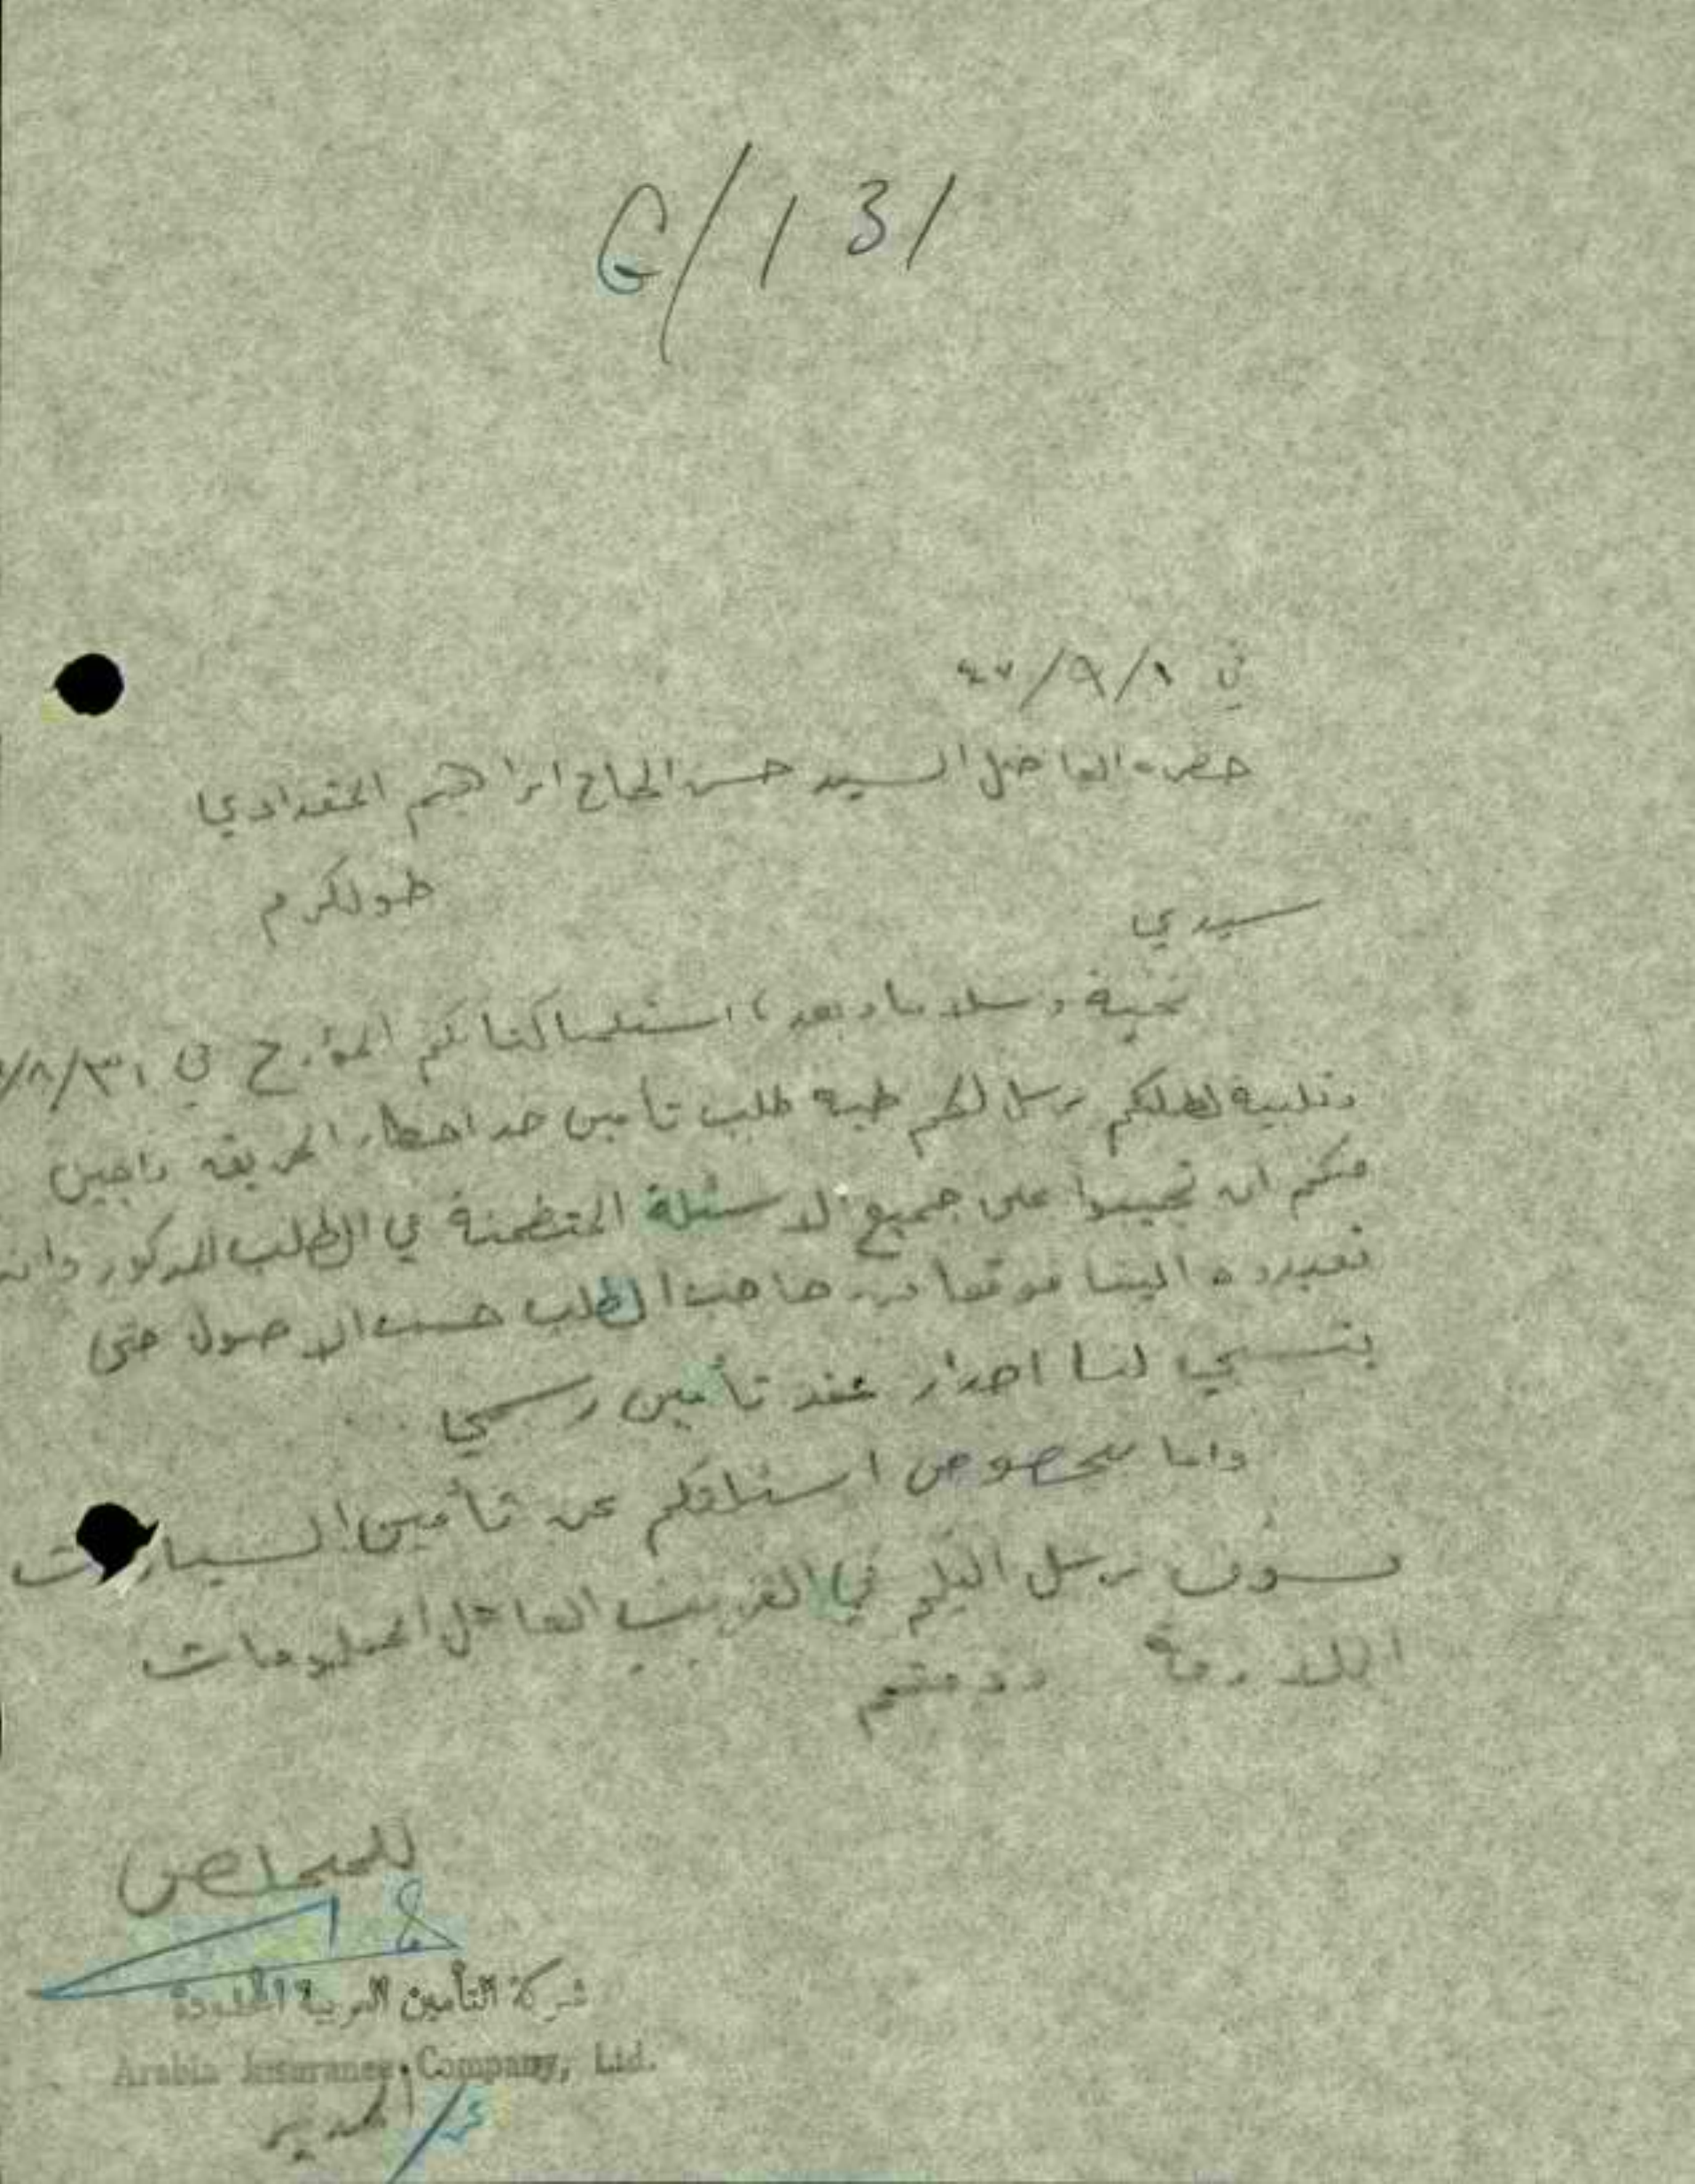 G/131
في ٤٧/٩/١
حضرة الفاضل السيد حسن الحاج ابراهيم المقدادي
طولكرم
سيدي
تحية وسلاما وبعد، استلمنا كتابكم المؤرخ في ٨/٣١/
وتلبية لطلبكم نرسل لكم طيه طلب تأمين ضد اخطار الحريق راجين
منكم ان تجيبوا على جميع الاسئلة المتضمنة في الطلب المذكور وان
تعيدوه الينا موقعا من صاحب الطلب حسب الاصول حتى
يتسنى لنا اصدار عقد تأمين رسمي
واما بخصوص اسئلتكم عن تأمين السيارات
فسوف نرسل اليكم في القريب العاجل المعلومات
اللازمة ودمتم
المخلص
شركة التأمين العربية المحدودة
Arabia Insurance Company, Ltd.
المدير